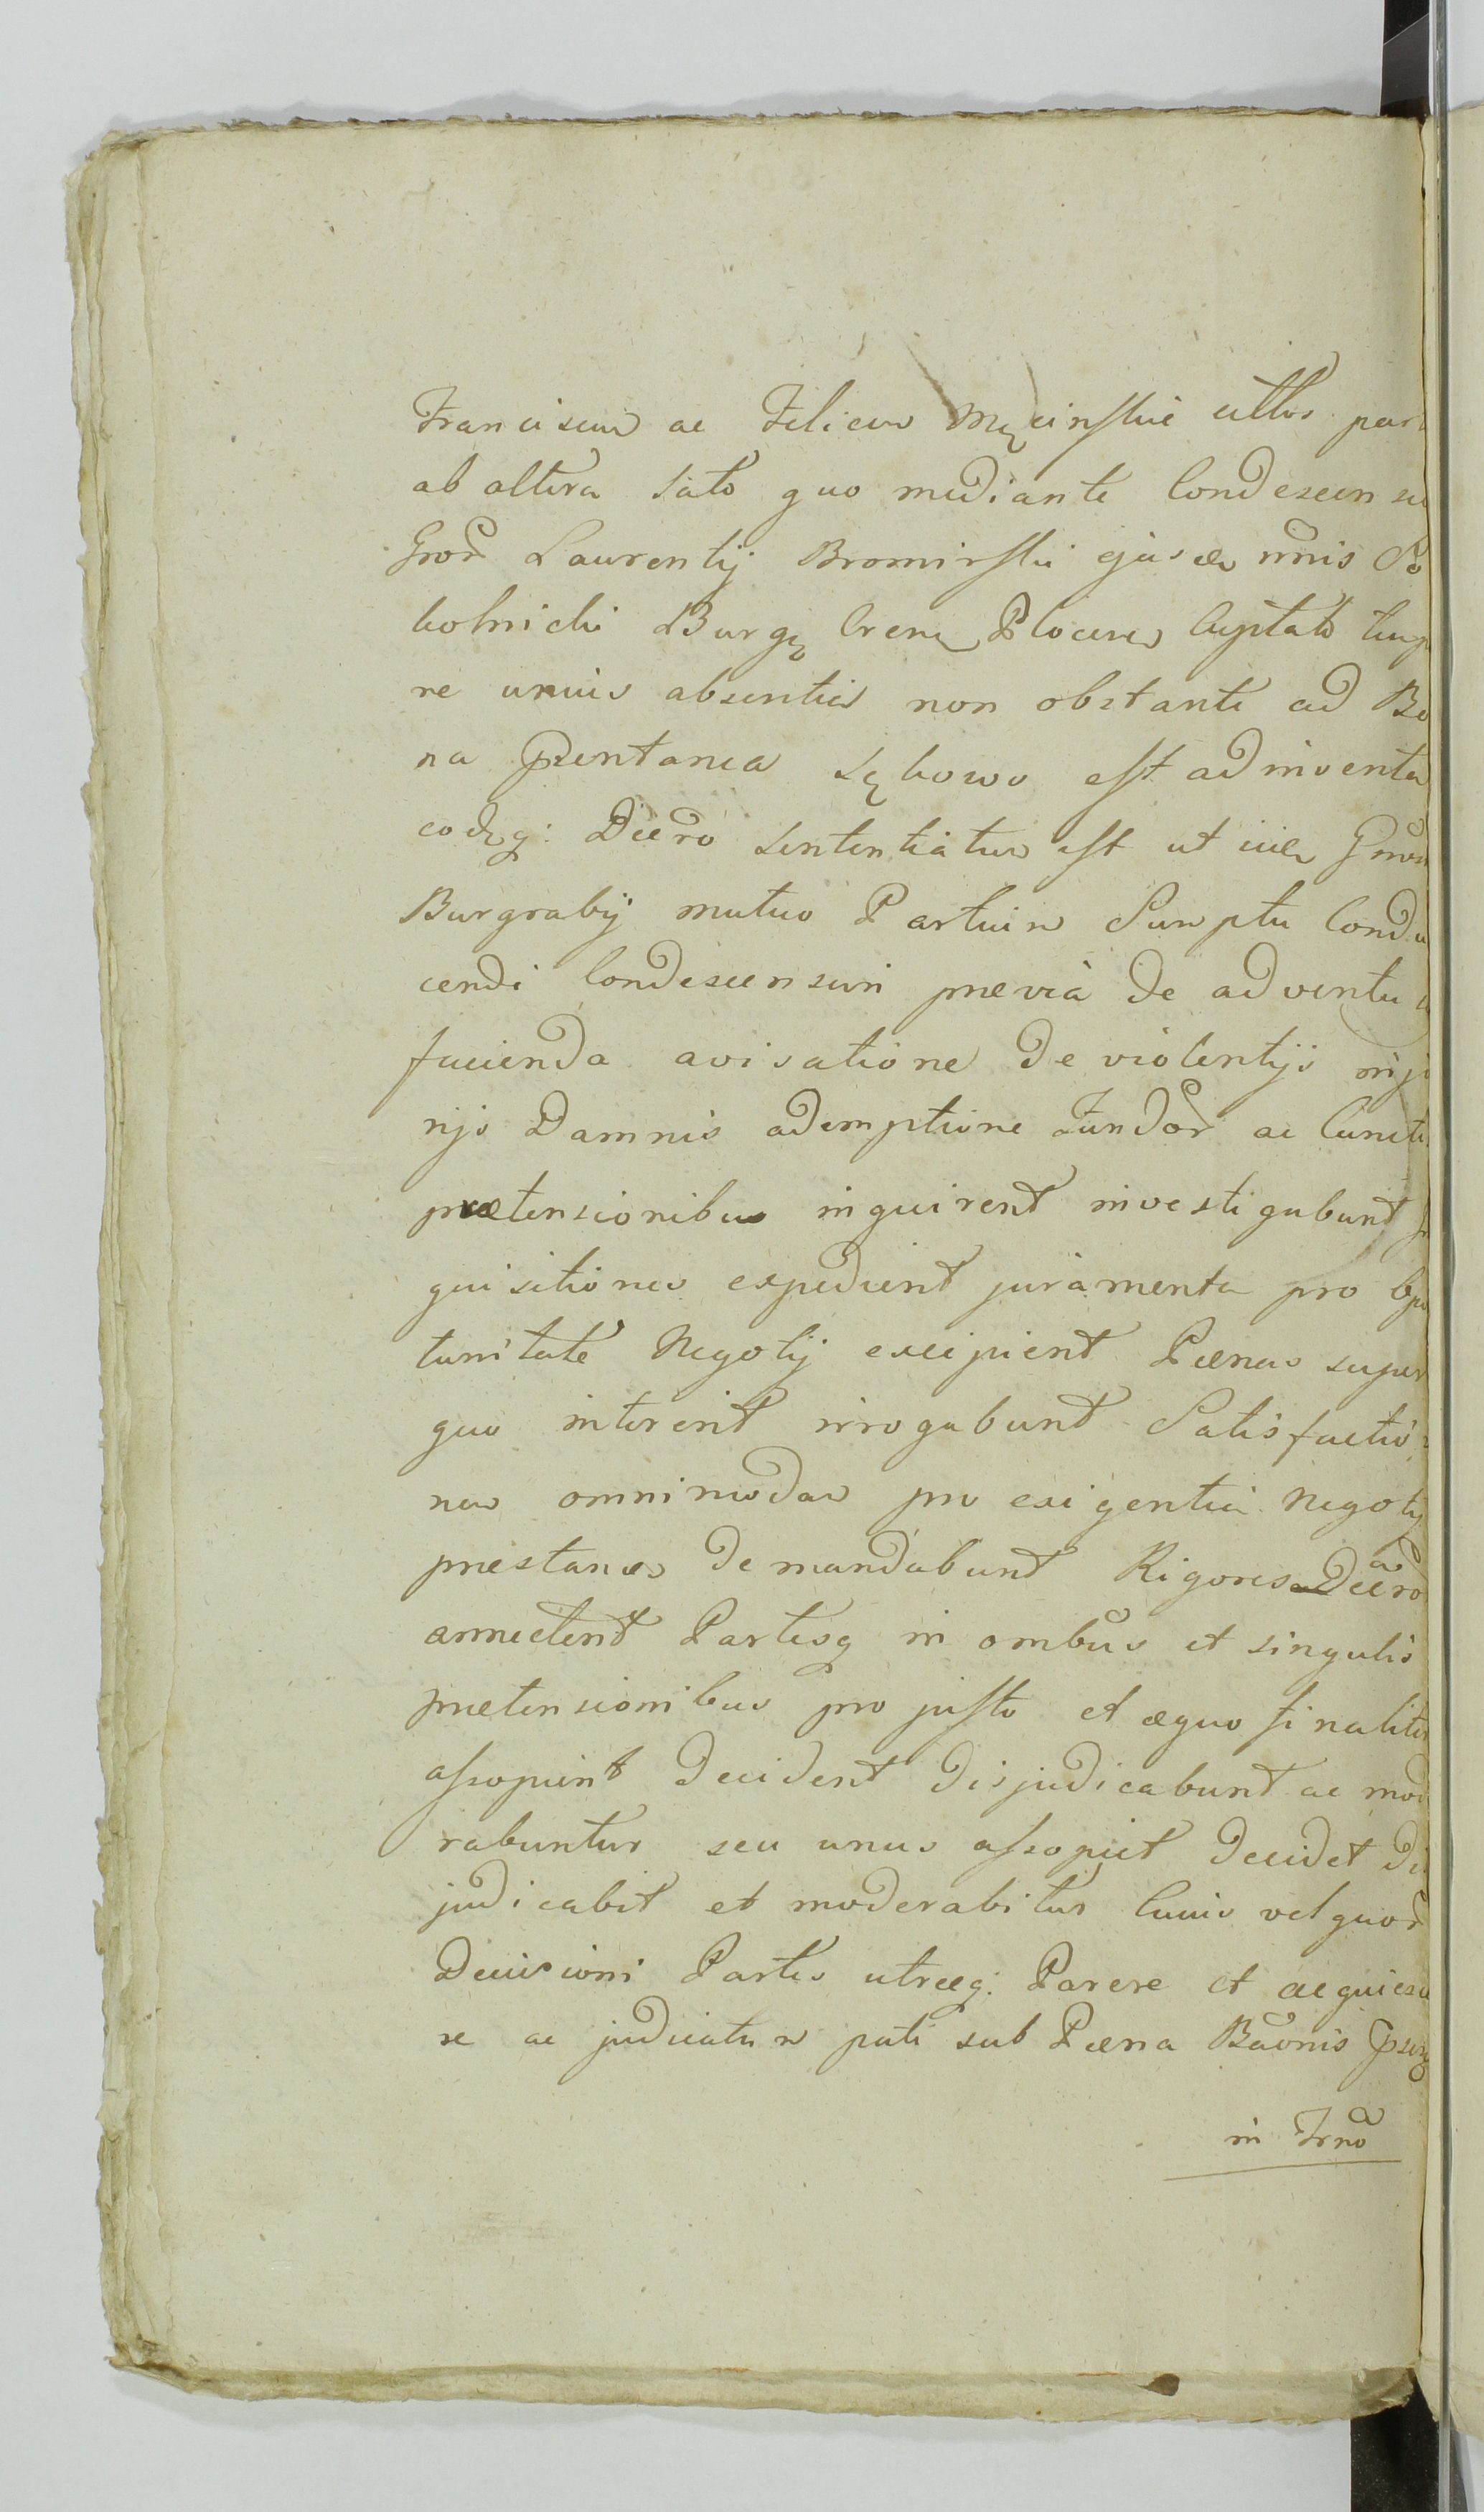 Franciscum ac Felicem Męcinſkie cittos par
ab altera Lato quo mediante Condescensu
Gnor̃ Laurentij Bromirſki ejusdẽ nr̃nis So
kolnicki Burgꝫ Crcen Plocen Capitał temp
re unius absentia non obstante ad Bo
na Pr̃entanea Sękowo eſt adinventa
eodꝫq: Decr̃o sententiatum eſt ut iidẽ Gnosi
Burgrabij mutuo Partium Sumptu Condu
cendi Condescensuri prævia de adventu s
facienda avisatione de violentijs inju
rijs Damnis ademptione Fundor̃ ac Cunctis
prætensionibus inquirent investigabunt In
quisitiones expedient juramenta pro Opor
tunitate Negotij excipient Pænas super
quo intererit irrogabunt Satisfactio
nes omnimodas pro exigentia Negotij
præstandas demandabunt Rigores Decr̃o
annectent Partesq in omb̃us et singulis
prætensionibus pro juſto et æquo finaliter
aſsopient Decident Disjudicabunt ac mode
rabuntur seu unus aſsopiet Decidet Dis
judicabit et moderabitur Cujus vel quor̃
Decisioni Partes utræq: Parere et acquiesce
re ac judicatum pati sub Pæna Bãonis Pr̃sen
in Trnõ